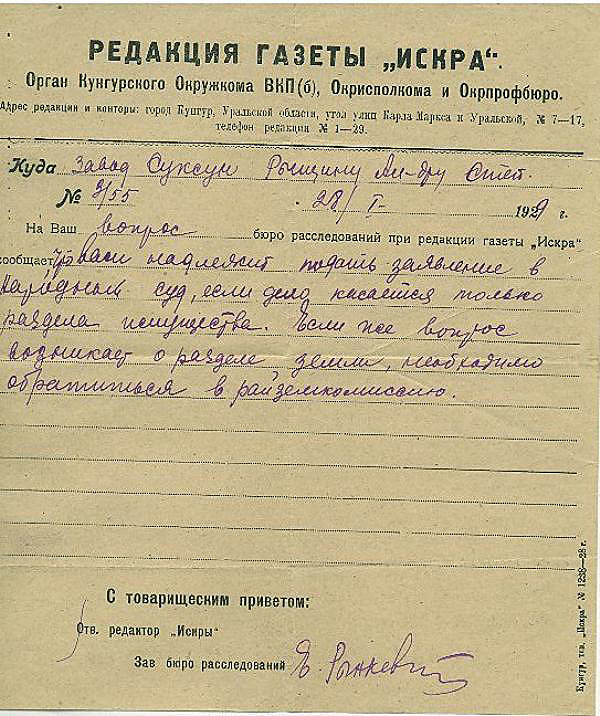 РЕДАКЦИЯ ГАЗЕТЫ „ИСКРА“.
Орган Кунгурского Окружкома ВКП(б), Окрисполкома и Окрпрофбюро.
Адрес редакции и конторы: город Кунгур, Уральской области, угол улиц Карла Маркса и Уральской, № 7—17,
телефон редакции № 1—29.
Куда Завод Суксун Рыщину Ал-дру Степ.
№ 2/55 28/I 1929 г.
На Ваш вопрос бюро расследований при редакции газеты „Искра“
сообщает: Вам надлежит подать заявление в
Народный суд, если дело касается только
раздела имущества. Если же вопрос
возникает о разделе земли, необходимо
обратиться в райземкомиссию.
С товарищеским приветом:
Отв. редактор „Искры“
Зав бюро расследований
Кунгур, тип. „Искра“ № 1238—28 г.